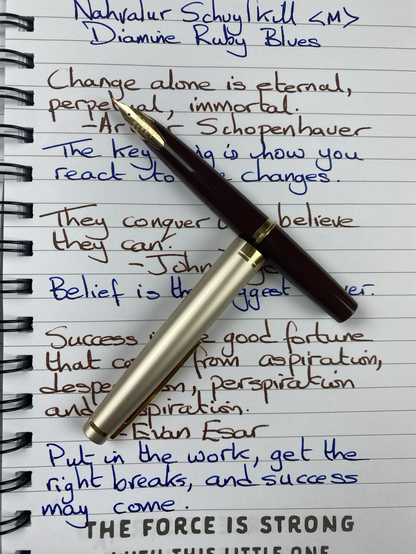 Nahvalur Schuylkill <M>
Diamine Ruby Blues
Change alone is eternal,
perpetual, immortal.
-Arthur Schopenhauer
The key is how you
react to changes.
They conquer believe
they can.
-John
Belief is the biggest
Success good fortune
that comes from aspiration,
desperation, perspiration
and inspiration.
-Evan Esar
Put in the work, get the
right breaks, and success
may come.
THE FORCE IS STRONG
WITH THIS LITTLE ONE